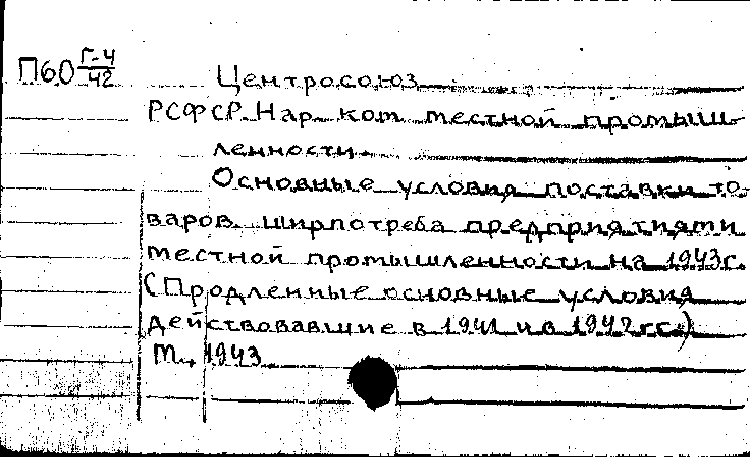 П60 Г-4/42
Центросоюз
РСФСР. Нар. ком. местной промыш-
ленности.
Основные условия поставки то-
варов ширпотреба предприятиями
местной промышленности на 1943 г.
(Продленные основные условия
действовавшие в 1941 и в 1942 г.г.)
М., 1943